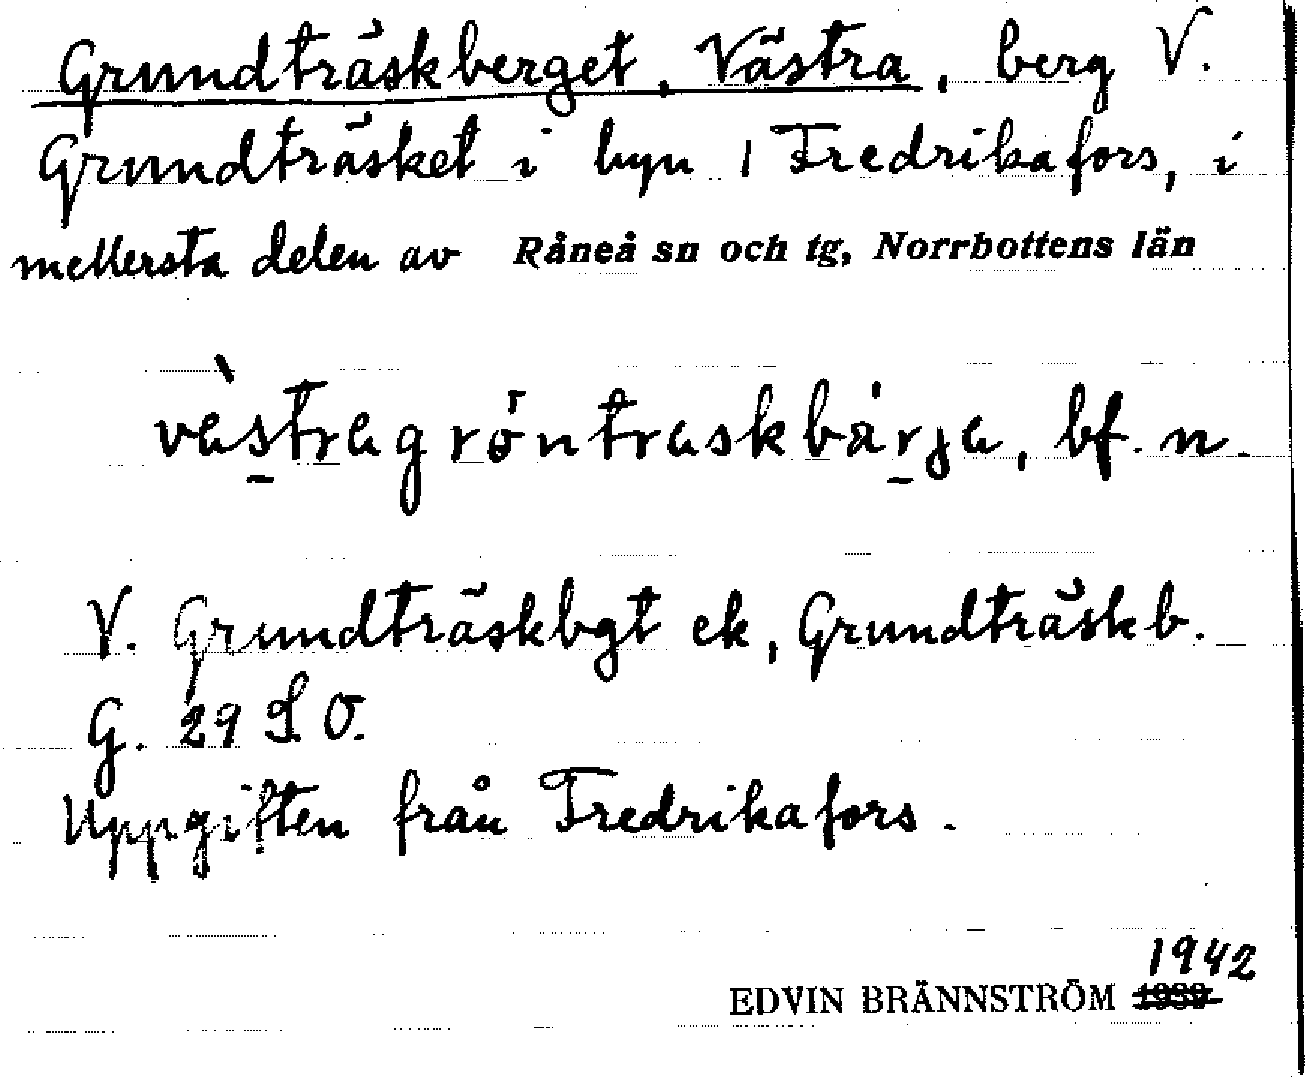 Grundträskberget, Västra, berg V.
Grundträsket i byn 1 Fredrikafors, i
mellersta delen av Råneå sn och tg, Norrbottens län
vàs̠tragröntraskbár̠ja, bf. n.
V. Grundträskbgt ek, Grundträskb.
G. 29 S O.
Uppgiften från Fredrikafors.
1942
EDVIN BRÄNNSTRÖM 1939